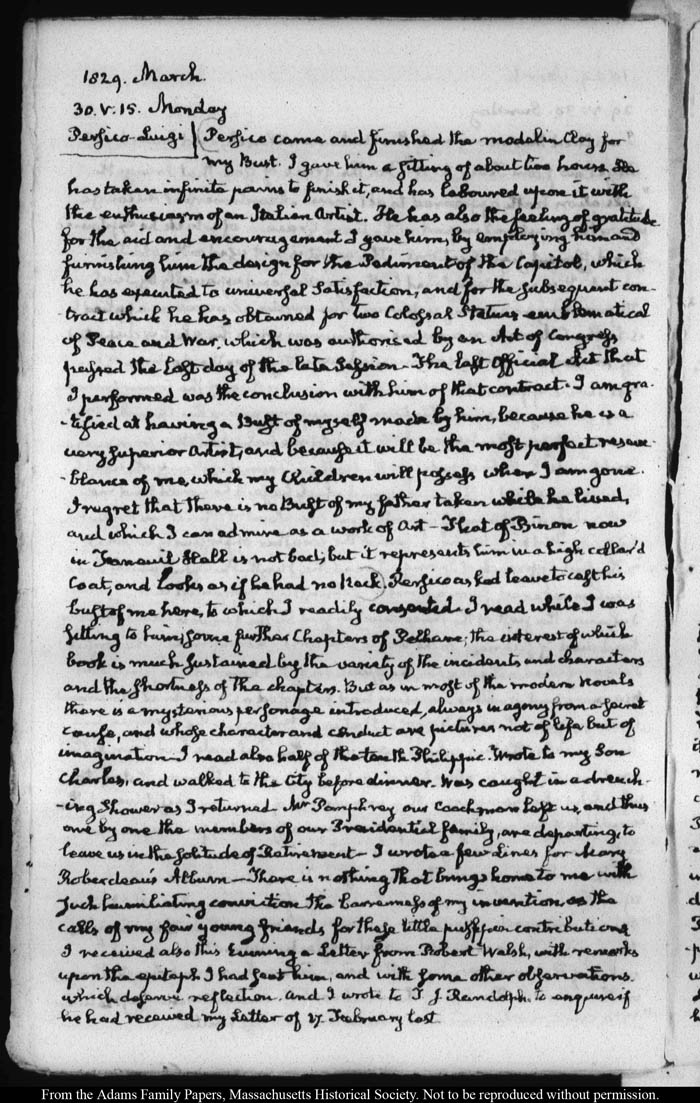 1829. March.
30. V. 15. Monday
Persico Luigi Persico came and finished the model in Clay for
my Bust. I gave him a sitting of about two hours. He
has taken infinite pains to finish it, and has laboured upon it with
the enthusiasm of an Italian Artist. He has also the feeling of gratitude
for the aid and encouragement I gave him, by employing him and
furnishing him the design for the Pediment of the Capitol, which
he has executed to universal satisfaction, and for the subsequent con-
-tract which he has obtained for two Colossal Statues emblematical
of Peace and War, which was authorised by an Act of Congress
passed the last day of the late Session. The last Official Act that
I performed was the conclusion with him of that contract. I am gra-
-tified at having a Bust of myself made by him, because he is a
very superior Artist, and because it will be the most perfect resem-
-blance of me, which my Children will possess when I am gone.
I regret that there is no Bust of my father taken while he lived,
and which I can admire as a work of Art — That of Binon now
in Faneuil Hall is not bad; but it represents him in a high collar'd
Coat, and looks as if he had no Neck. Persico asked leave to cast his
bust of me here, to which I readily consented. I read while I was
sitting to him, some further Chapters of Pelham; the interest of which
book is much sustained by the variety of the incidents and characters
and the shortness of the chapters. But as in most of the modern novels
there is a mysterious personage introduced, always in agony from a secret
cause, and whose character and conduct are pictures not of life but of
imagination — I read also half of the tenth Philippic. Wrote to my Son
Charles, and walked to the City before dinner. Was caught in a drench-
-ing Shower as I returned. Mr Pamphrey our Coachman left us, and thus
one by one the members of our Presidential family, are departing, to
leave us in the solitude of Retirement — I wrote a few Lines for Mary
Roberdeau's Album — There is nothing that brings home to me with
such humiliating conviction the barrenness of my invention, as the
calls of my fair young friends for these little contributions
I received also this Evening a Letter from Robert Walsh, with remarks
upon the epitaph I had sent him, and with some other observations.
which deserve reflection. And I wrote to T. J. Randolph, to enquire if
he had received my Letter of 27 February last
From the Adams Family Papers, Massachusetts Historical Society. Not to be reproduced without permission.